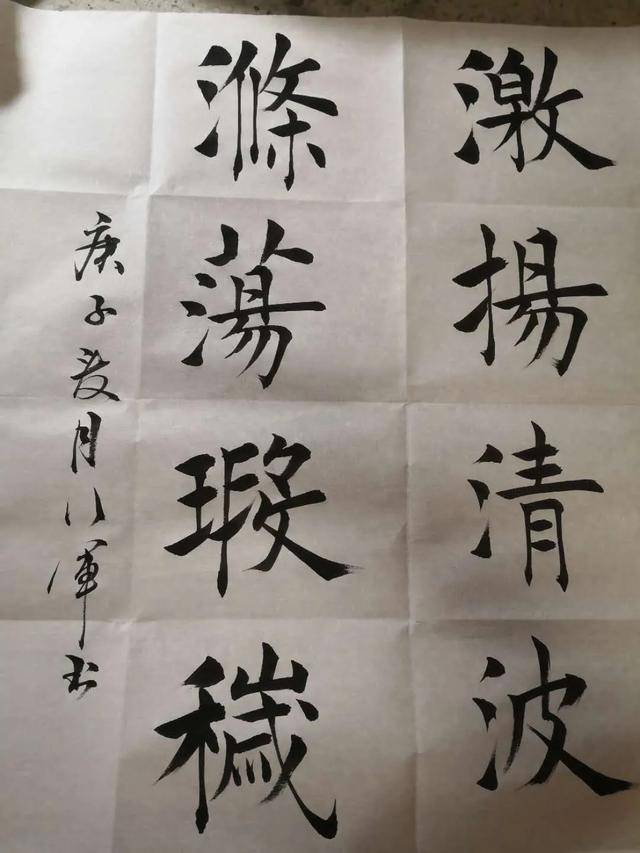 激揚清波
滌蕩瑕穢
庚子夏月小軍书